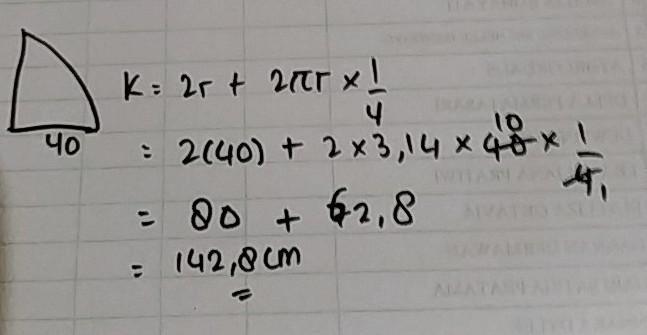 K = 2r + 2πr × 1/4
40
= 2(40) + 2 × 3,14 × 40 10 × 1/4 1
= 80 + 62,8
= 142,8 cm